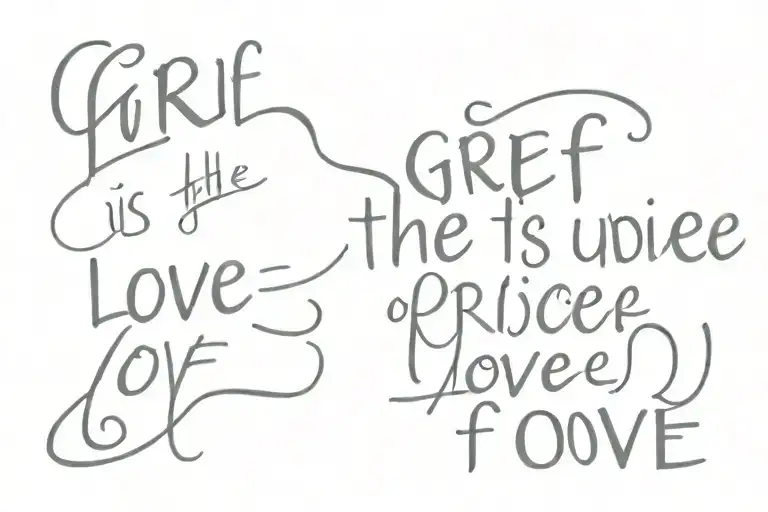 GRIF
is the
LOVE
LOVE
GREF
the is upiee
PRIJCEE
lovee
f OOVE